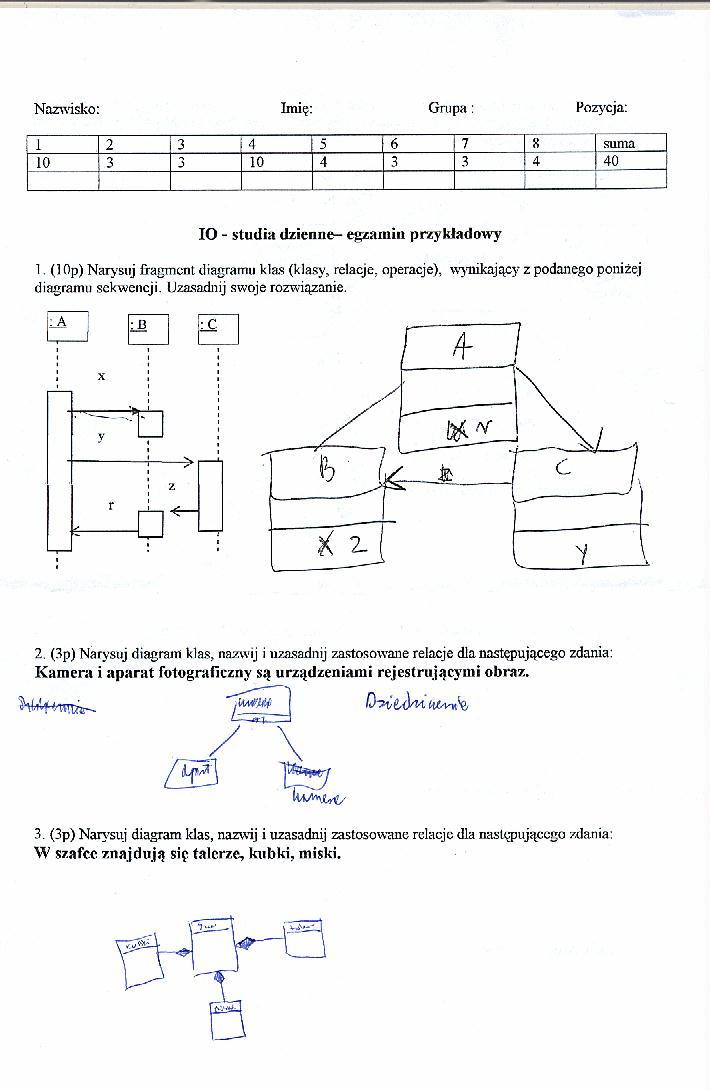 Nazwisko: Imię: Grupa : Pozycja:
1 2 3 4 5 6 7 8 suma
10 3 3 10 4 3 3 4 40
IO - studia dzienne– egzamin przykładowy
1. (10p) Narysuj fragment diagramu klas (klasy, relacje, operacje), wynikający z podanego poniżej
diagramu sekwencji. Uzasadnij swoje rozwiązanie.
: A : B : C
x
y
z
r
A
N
B
C
X 2
y
2. (3p) Narysuj diagram klas, nazwij i uzasadnij zastosowane relacje dla następującego zdania:
Kamera i aparat fotograficzny są urządzeniami rejestrującymi obraz.
Dziedziczenie
kamera
3. (3p) Narysuj diagram klas, nazwij i uzasadnij zastosowane relacje dla następującego zdania:
W szafce znajdują się talerze, kubki, miski.
kubki